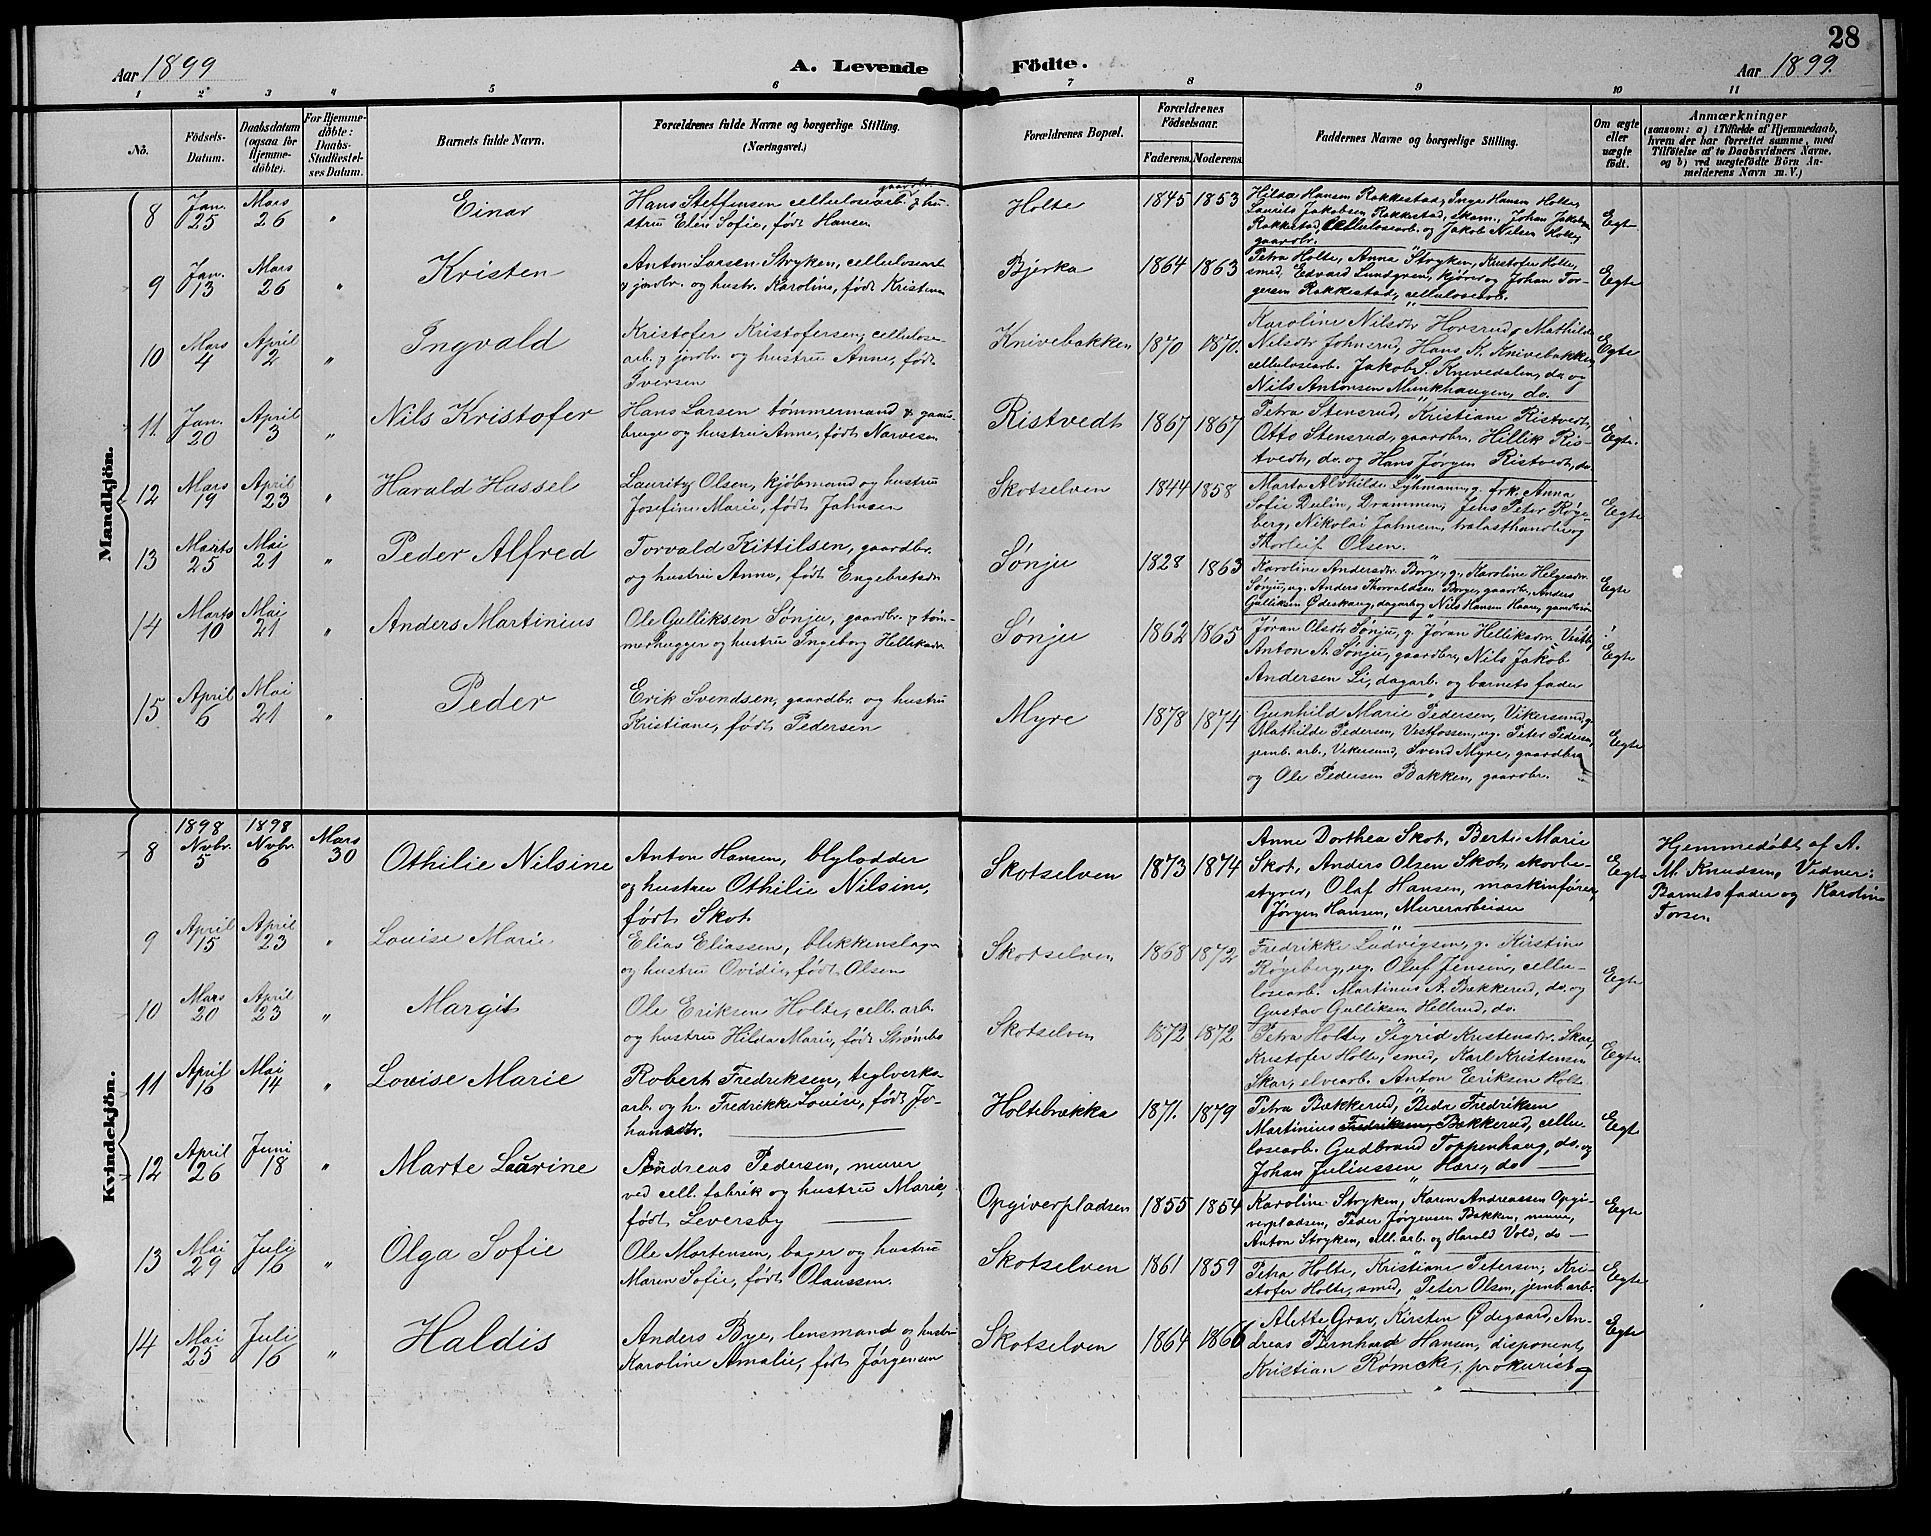 28
Aar 1899
A. Levende Födte.
Aar 1899.
1 2 3 4 5 6 7 8 9 10 11
No.
Födsels-Datum.
Daabsdatum (ogsaa for Hjemme-döbte).
For Hjemme-döbte: Daabs-Stadfestel-ses Datum.
Barnets fulde Navn.
Forældrenes fulde Navne og borgerlige Stilling.
(Næringsvei.)
Forældrenes Bopæl.
Forældrenes Födselsaar.
Faderens. Moderens.
Faddernes Navne og borgerlige Stilling.
Om ægte eller uægte födt.
Anmærkninger
(saasom: a) i Tilfælde af Hjemmedaab,
hvem der har forrettet samme, med
Tilföielse af to Daabsvidners Navne,
og b) ved uægtefödte Börn An-
melderens Navn m. V.)
Mandkjön.
8 Jan. 25 Mars 26 " Einar
gaardbr.
Hans Steffensen cellulosearb. & hu-
stru Eline Sofie, født Hansen
Holte 1845 1853
Hilda Hansen Rakkestad, Inga Hansen Holte,
Laurits Jakobsen Rakkestad, skom., Johan Jakobsen
Rakkestad, cellulosearb. og Jakob Nilsen Holte,
gaardbr.
Egte
9 Jan. 13 Mars 26 " Kristen
Anton Larsen Stryken, cellulosearb.
& jordbr. og hustr. Karoline, født Kristensen
Bjerka 1864 1863
Petra Holte, Anna Stryken, Kristofer Holte,
smed, Edvard Lundgren, kjører og Johan Tor-
gersen Rakkestad, cellulosearb.
Egte
10 Mars 4 April 2 " Ingvald
Kristofer Kristofersen, cellulose-
arb. & jordbr. og hustru Anne, født
Iversen
Knivebakken 1870 1870.
Karoline Nilsdtr Horsrud, Mathilde
Nilsdtr Johnsrud, Hans K. Knivebakken,
cellulosearb. Jakob S. Knivedalen, do. og
Nils Antonsen Munkhaugen, do.
Egte
11. Jan. 20 April 3 " Nils Kristofer
Hans Larsen tømmermand & gaard-
bruger og hustru Anne, født Narvesen
Ristvedt 1867 1867
Petra Stensrud, Kristiane Ristvedt,
Otto Stensrud, gaardbr., Hillik Ris-
tvedt, do. og Hans Jørgen Ristvedt, do.
Egte.
12 Mars 19 April 23 " Harald Hassel
Lauritz Olsen, kjøbmand og hustru
Josefine Marie, født Jahnsen
Skotselven 1844 1858
Marta Alvhilde Syhmann, g. frk. Anna
Sofie Dulin, Drammen, Jens Peter Røge-
berg, Nikolai Jahnsen, trælasthandler og
Thorleif Olsen.
Egte
13 Marts 25 Mai 21 " Peder Alfred
Torvald Kittilsen, gaardbr.
og hustru Anne, født Engebretsdtr
Sønju 1828 1863
Karoline Andersdtr. Borge, g. Karoline Helgesdtr.
Sønju, ug. Anders Thorvaldsen Borge, gaardbr., Anders
Gulliksen Ødeskaug, dagarb. og Nils Hansen Haare, gaardbrsøn
Egte
14 Marts 10 Mai 21 " Anders Martinius
Ole Gulliksen Sønju, gaardbr. & tøm-
merhugger og hustru Ingeborg Helliksdtr.
Sønju 1862 1865
Jøran Olsdtr Sønju, g. Jøran Helliksdtr. Vestby,
Anton A. Sønju, gaardbr., Nils Jakob
Andersen Li, dagarb. og barnets fader
Egte
15 April 6 Mai 21 " Peder
Erik Svendsen, gaardbr. og hustru
Kristiane, født Pedersen
Myre 1878 1874
Gunhild Marie Pedersen, Vikersund, g.
Mathilde Pedersen, Vestfossen, ug. Peter Pedersen,
jernb. arb., Vikersund, Svend Myre, gaardbr.
og Ole Pedersen Bakken, gaardbr.
Egte
Kvindekjön.
8 1898 Nvbr. 5 1898 Nvbr. 6 Mars 30 Othilie Nilsine
Anton Hansen, blylodder
og hustru Othilie Nilsine,
født Skot
Skotselven 1873 1874
Anne Dorthea Skot, Berte Marie
Skot, Anders Olsen Skot, skovbe-
styrer, Olaf Hansen, maskinfører,
Jørgen Hansen, Murerarbeider
Egte
Hjemmedøbt af A.
M. Knudsen, Vidner:
Barnets fader og Karoline
Torsen.
9 April 15 April 23 " Lovise Marie
Elias Eliassen, blikkenslager
og hustru Ovidie, født Olsen
Skotselven 1868 1872
Fredrikke Ludvigsen, g. Kirstine
Røgeberg, ug. Oluf Jensen, cellu-
losearb. Martinus A. Bækkerud, do. og
Gustav Gulliksen Hellerud, do.
Egte
10 Mars 20 April 23 " Margit
Ole Eriksen Holte, cell. arb.
og hustru Hilda Marie, født Strømbo
Skotselven 1872 1872
Petra Holte, Sigrid Kristensdtr. Skar,
Kristofer Holte, smed, Karl Kristensen
Skar, elvearb. Anton Eriksen Holte
Egte
11 April 16 Mai 14 " Lovise Marie
Robert Fredriksen, teglverks-
arb. og h. Fredrikke Lovise, født Jo-
hansdtr.
Holtebrækka 1871. 1879
Petra Bækkerud, Beda Fredriksen
Martinius Fredriksen, Bækkerud, cellu-
losearb. Gudbrand Toppenhaug, do. og
Johan Juliussen Hære, do
Egte
12 April 26 Juni 18 " Marte Laurine
Andreas Pedersen, murer
ved cell. fabrik og hustru Marie,
født Leversby
Opgiverpladsen 1855 1854
Karoline Stryken, Karen Andreassen Opgi-
verpladsen, Peder Jørgensen Bakken, murer,
Anton Stryken, cell. arb. og Harald Vold, do
Egte
13 Mai 29 Juli 16 " Olga Sofie
Ole Mortensen, bager og hustru
Maren Sofie, født Olaussen.
Skotselven 1861 1859
Petra Holte, Kristiane Petersen, Kri-
stofer Holte, smed, Peter Olsen, jernb. arb.
Egte
14 Mai 25 Juli 16 " Haldis
Anders Bye, lensmand og hustru
Karoline Amalie, født Jørgensen
Skotselven 1864 1866
Alette Grav, Kirsten Ødegaard, An-
dreas Bernhard Hansen, disponent,
Kristian Rømcke, prokurist og
"
Egte